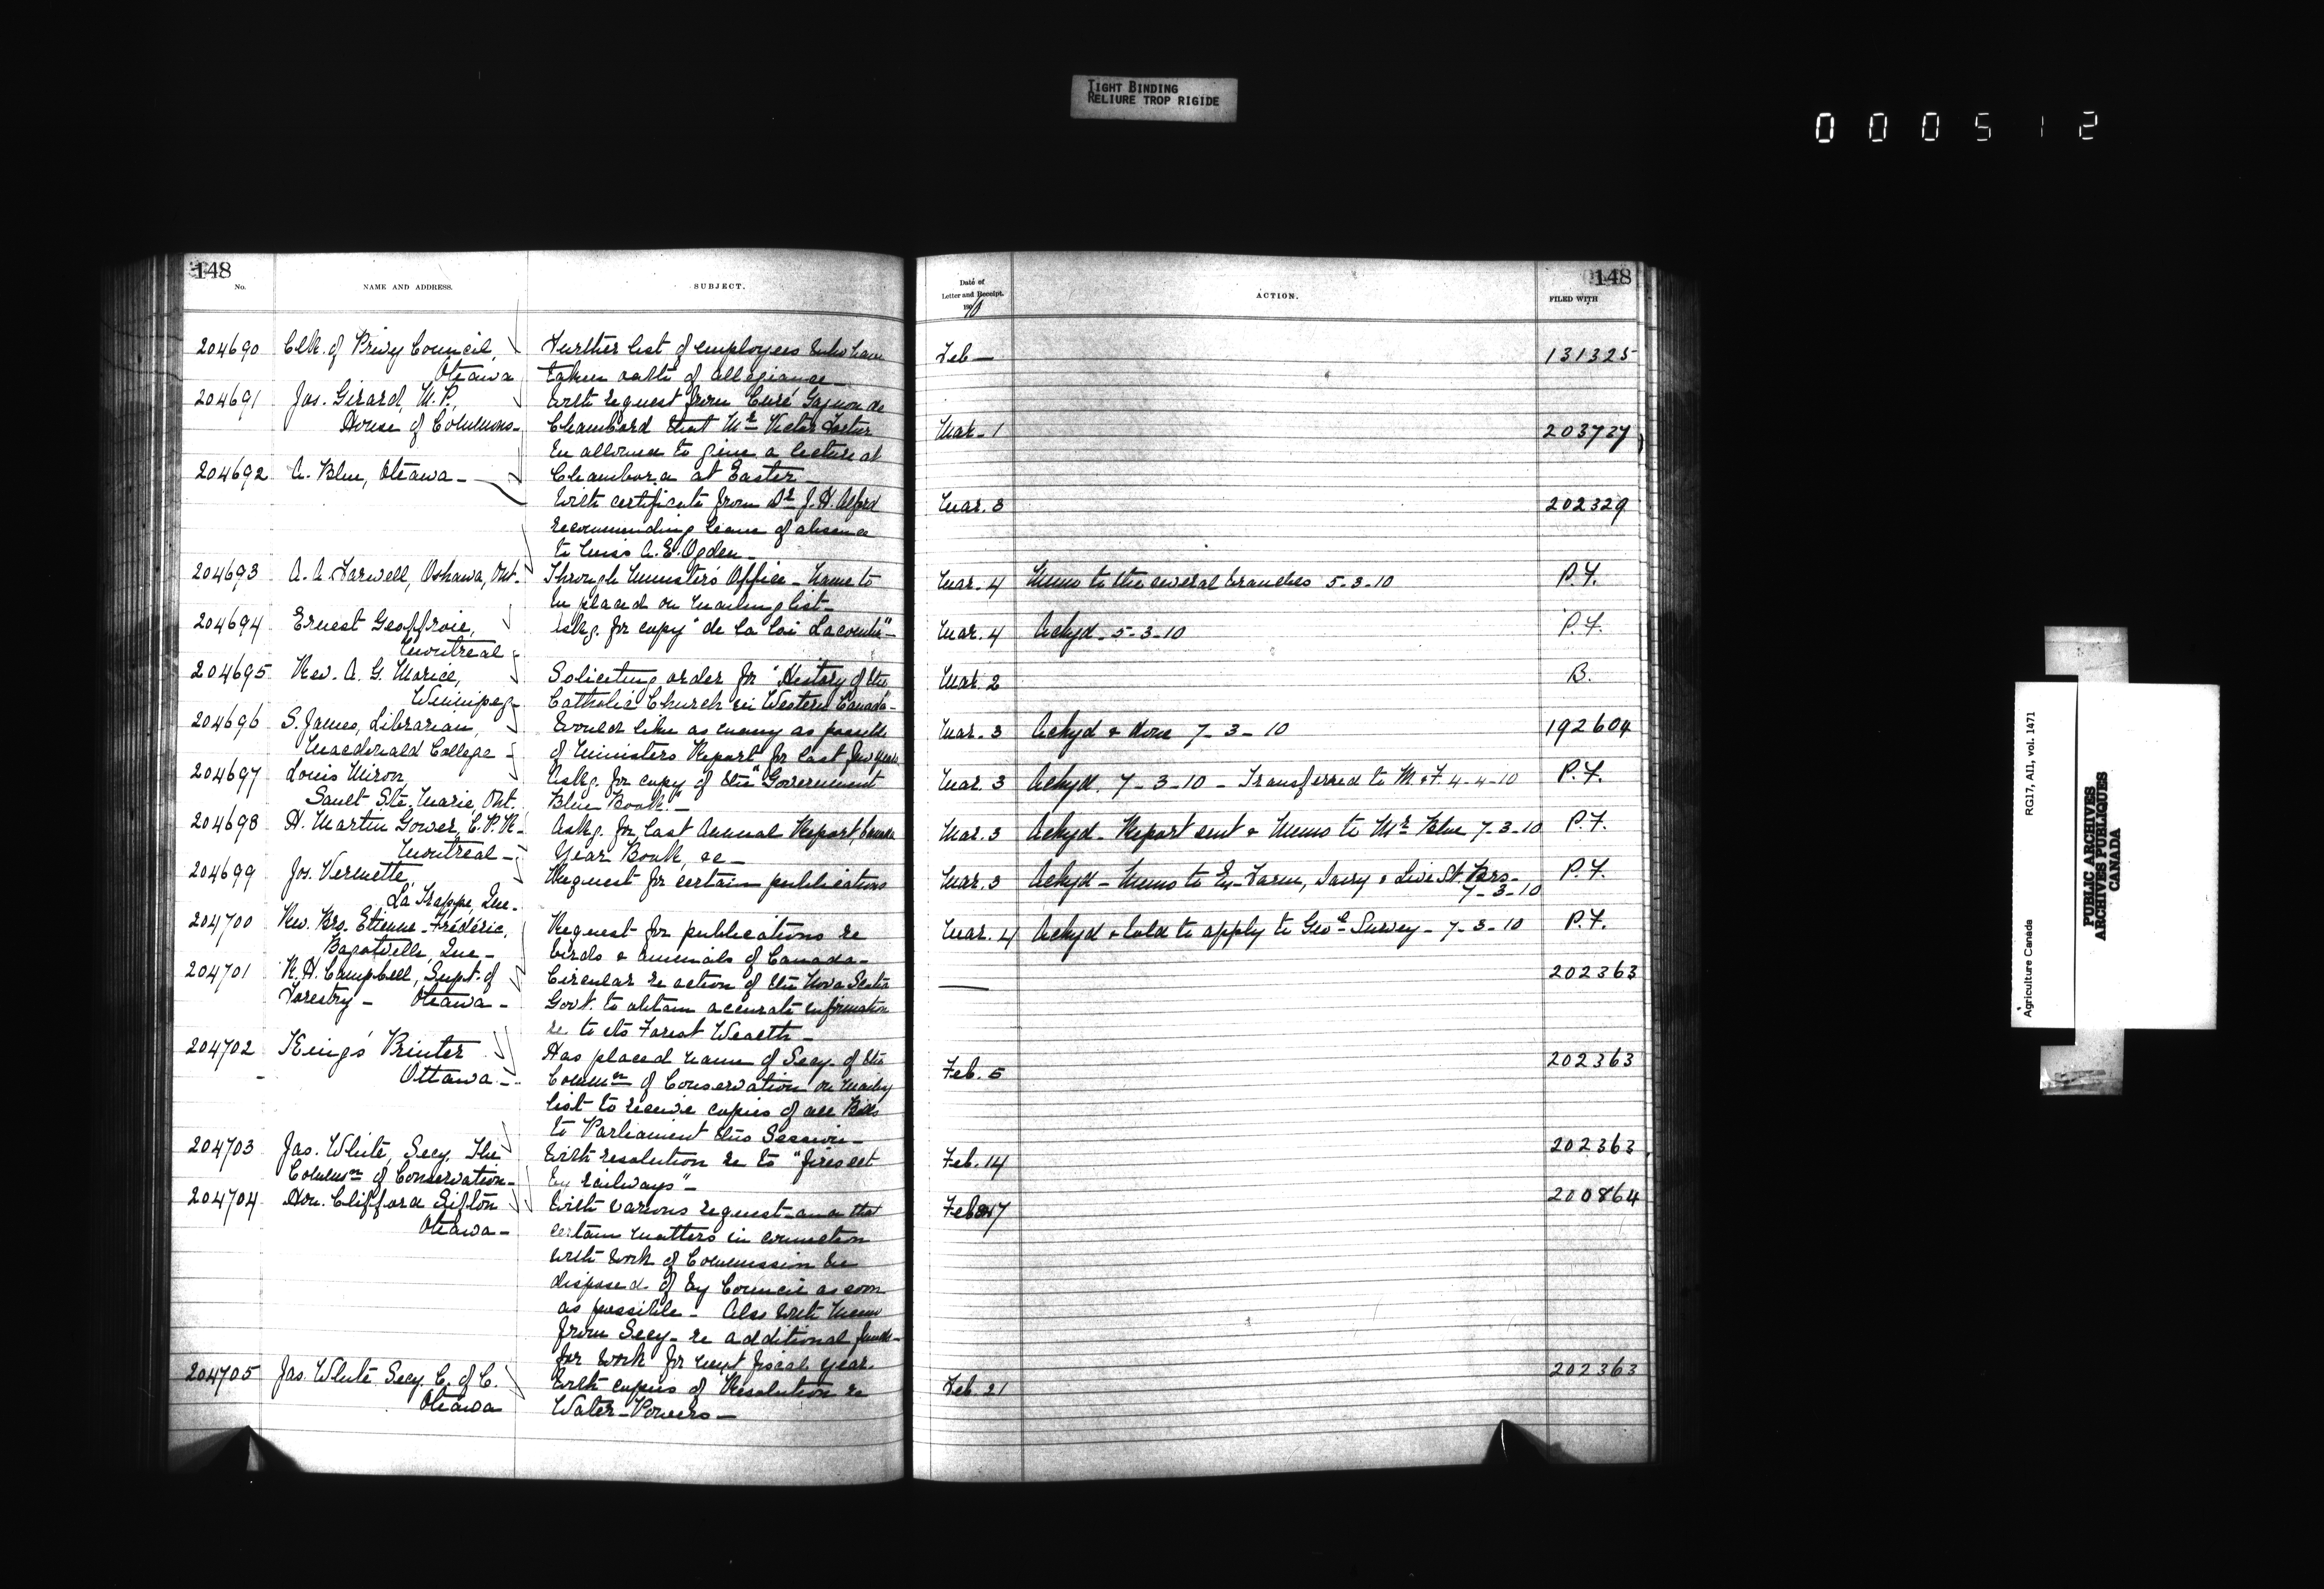 TIGHT BINDING
RELIURE TROP RIGIDE
000512
148
No.
NAME AND ADDRESS.
SUBJECT.
204690 Clk. of Privy Council, Further list of employees who have
Ottawa taken oath of allegiance
204691 Jos. Girard, M.P., With request from Curé Gagnon de
House of Commons- Chambord that Mr Victor
be allowed to give a lecture at
204692 A. Blue, Ottawa- Chambord at Easter-
With certificate from Dr J. H. Alford
recommending leave of absence
to Miss A. E. Ogden-
204693 A. A. Farwell, Oshawa, Ont. Through Minister's Office - Name to
be placed on mailing list-
204694 Ernest Geoffroie, Askg. for copy "de la loi Lacombe"-
Montreal-
204695 Rev. A. G. Morice, Soliciting order for "History of the
Winnipeg- Catholic Church in Western Canada"-
204696 S. James, Librarian, Would like as many as possible
Macdonald College- of Ministers Report for last few years
204697 Louis Miron, Askg. for copy of the "Government
Sault Ste. Marie, Ont. Blue Book".-
204698 H. Martin Gower, C.P.R- Askg. for last Annual Report, Canada
Montreal- Year Book, &c-
204699 Jos. Vermette, Request for certain publications
La Trappe, Que.
204700 Rev. Bro. Etienne-Fréderic, Request for publications re
Bagotville, Que- birds & animals of Canada-
204701 R. H. Campbell, Supt. of Circular re action of the Nova Scotia
Forestry- Ottawa- Govt. to obtain accurate information
re to its Forest Wealth-
204702 King's Printer Has placed name of Secy. of the
Ottawa- Commn of Conservation on mailing
list to receive copies of all Bills
to Parliament this Session-
204703 Jas. White, Secy. The With resolution re to "fires set
Commn of Conservation- by railways"-
204704 Hon. Clifford Sifton With various request that
Ottawa- certain matters in connection
with work of Commission be
disposed of by Council as soon
as possible- Also with memo
from Secy- re additional funds
for work for next fiscal year.
204705 Jas. White Secy. C. of C. With copies of Resolution re
Ottawa Water-Powers-
148
Date of
Letter and Receipt.
190
10
ACTION.
FILED WITH
Feb- 131325
Mar-1 203727
Mar. 3 202329
Mar. 4 Memo to the several branches 5-3-10 P.F.
Mar. 4 Ackgd. 5-3-10 P.F.
Mar. 2 B.
Mar. 3 Ackgd & done 7-3-10 192604
Mar. 3 Ackgd. 7-3-10 - Transferred to M. & F. 4-4-10 P.F.
Mar. 3 Ackgd- Report sent & Memo to Mr Blue 7-3-10 P.F.
Mar. 3 Ackgd- Memo to Ex-Farm, Dairy & Live St. Brs- P.F.
7-3-10
Mar. 4 Ackgd & told to apply to Geol Survey- 7-3-10 P.F.
— 202363
Feb. 5 202363
Feb. 14 202363
Feb 17 200864
Feb. 21 202363
Agriculture Canada RG17, AII, vol. 1471
PUBLIC ARCHIVES
ARCHIVES PUBLIQUES
CANADA